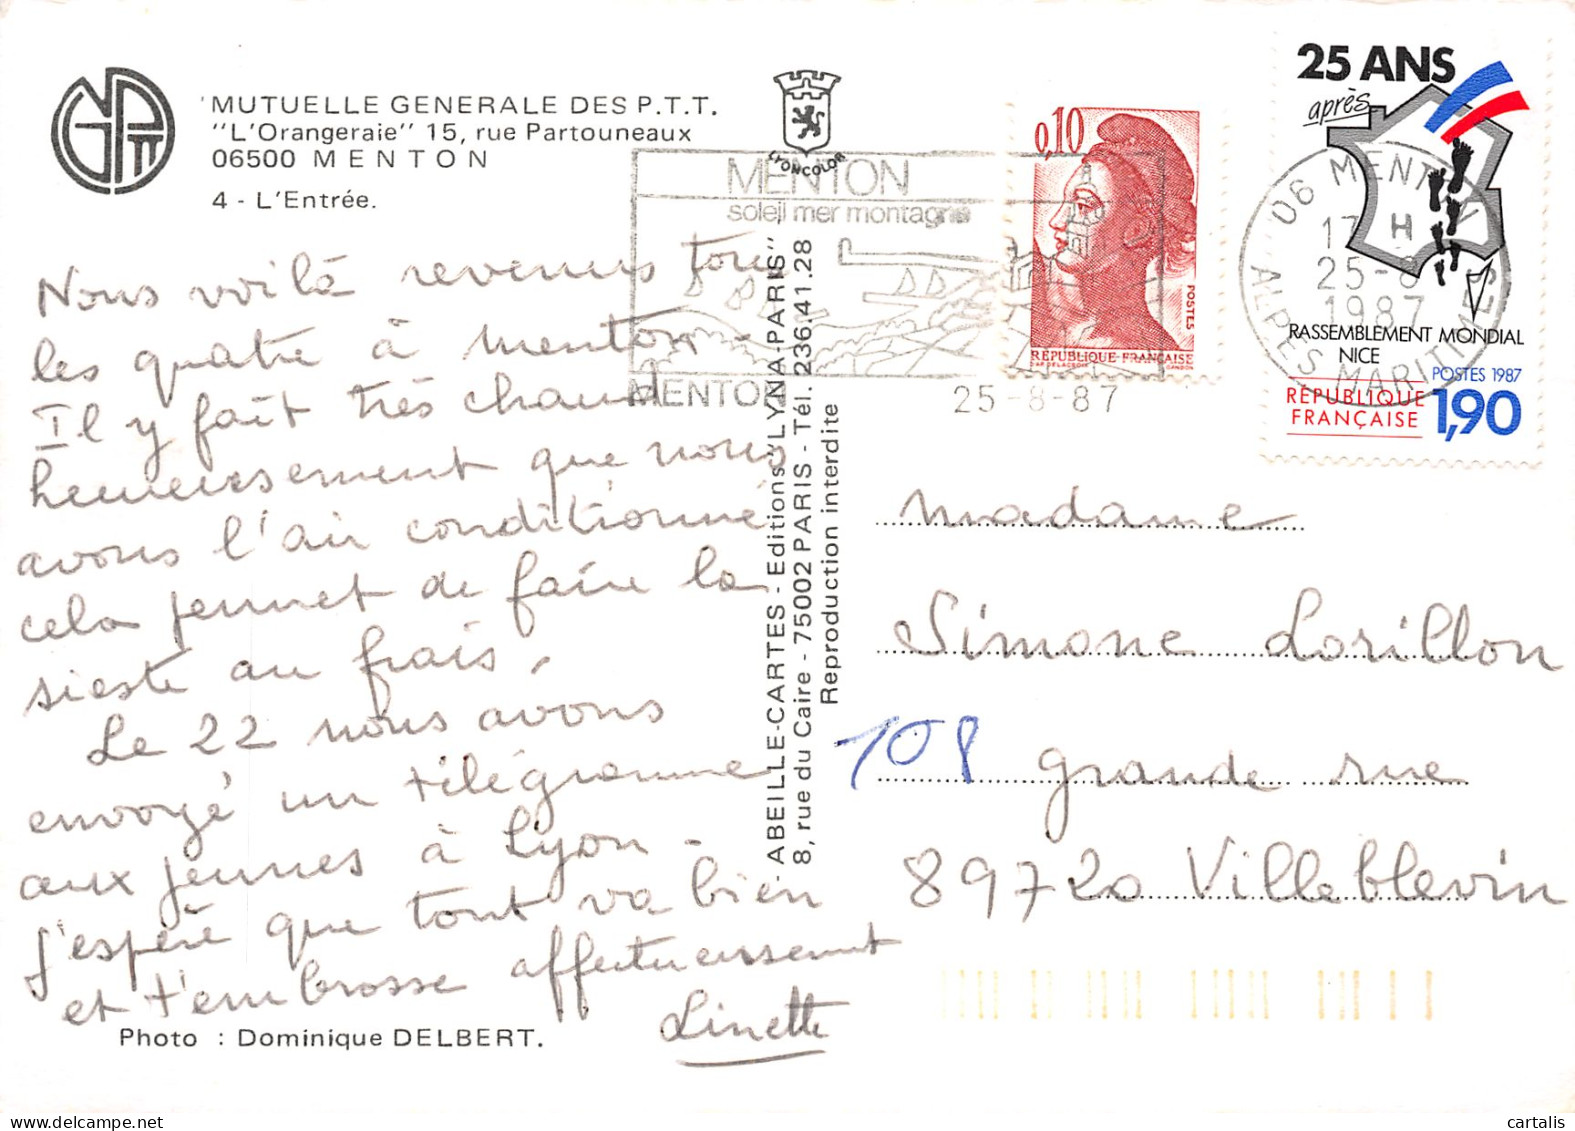 MUTUELLE GENERALE DES P.T.T.
"L'Orangeraie" 15, rue Partouneaux
06500 MENTON
4 - L'Entrée.
Nous voilà revenus tous
les quatre à menton -
Il y fait très chaud
heureusement que nous
avons l'air conditionné
cela permet de faire la
sieste au frais.
Le 22 nous avons
envoyé un télégramme
aux jeunes à Lyon -
J'espère que tout va bien
et t'embrasse affectueusement
Linette
Photo : Dominique DELBERT.
LYONCOLOR
MENTON
soleil mer montagne
MENTON
25-8-87
ABEILLE-CARTES - Editions "LYNA-PARIS" -
8, rue du Caire - 75002 PARIS - Tél. 236.41.28
Reproduction interdite
0,10
POSTES
RÉPUBLIQUE-FRANÇAISE
D'AP. DELACROIX GANDON
25 ANS
après
RASSEMBLEMENT MONDIAL
NICE
POSTES 1987
RÉPUBLIQUE
FRANÇAISE
1,90
06 MENTON
17 H
25-8
1987
ALPES MARITIMES
madame
Simone Lorillon
108 grande rue
89720 Villeblevin
cartalis